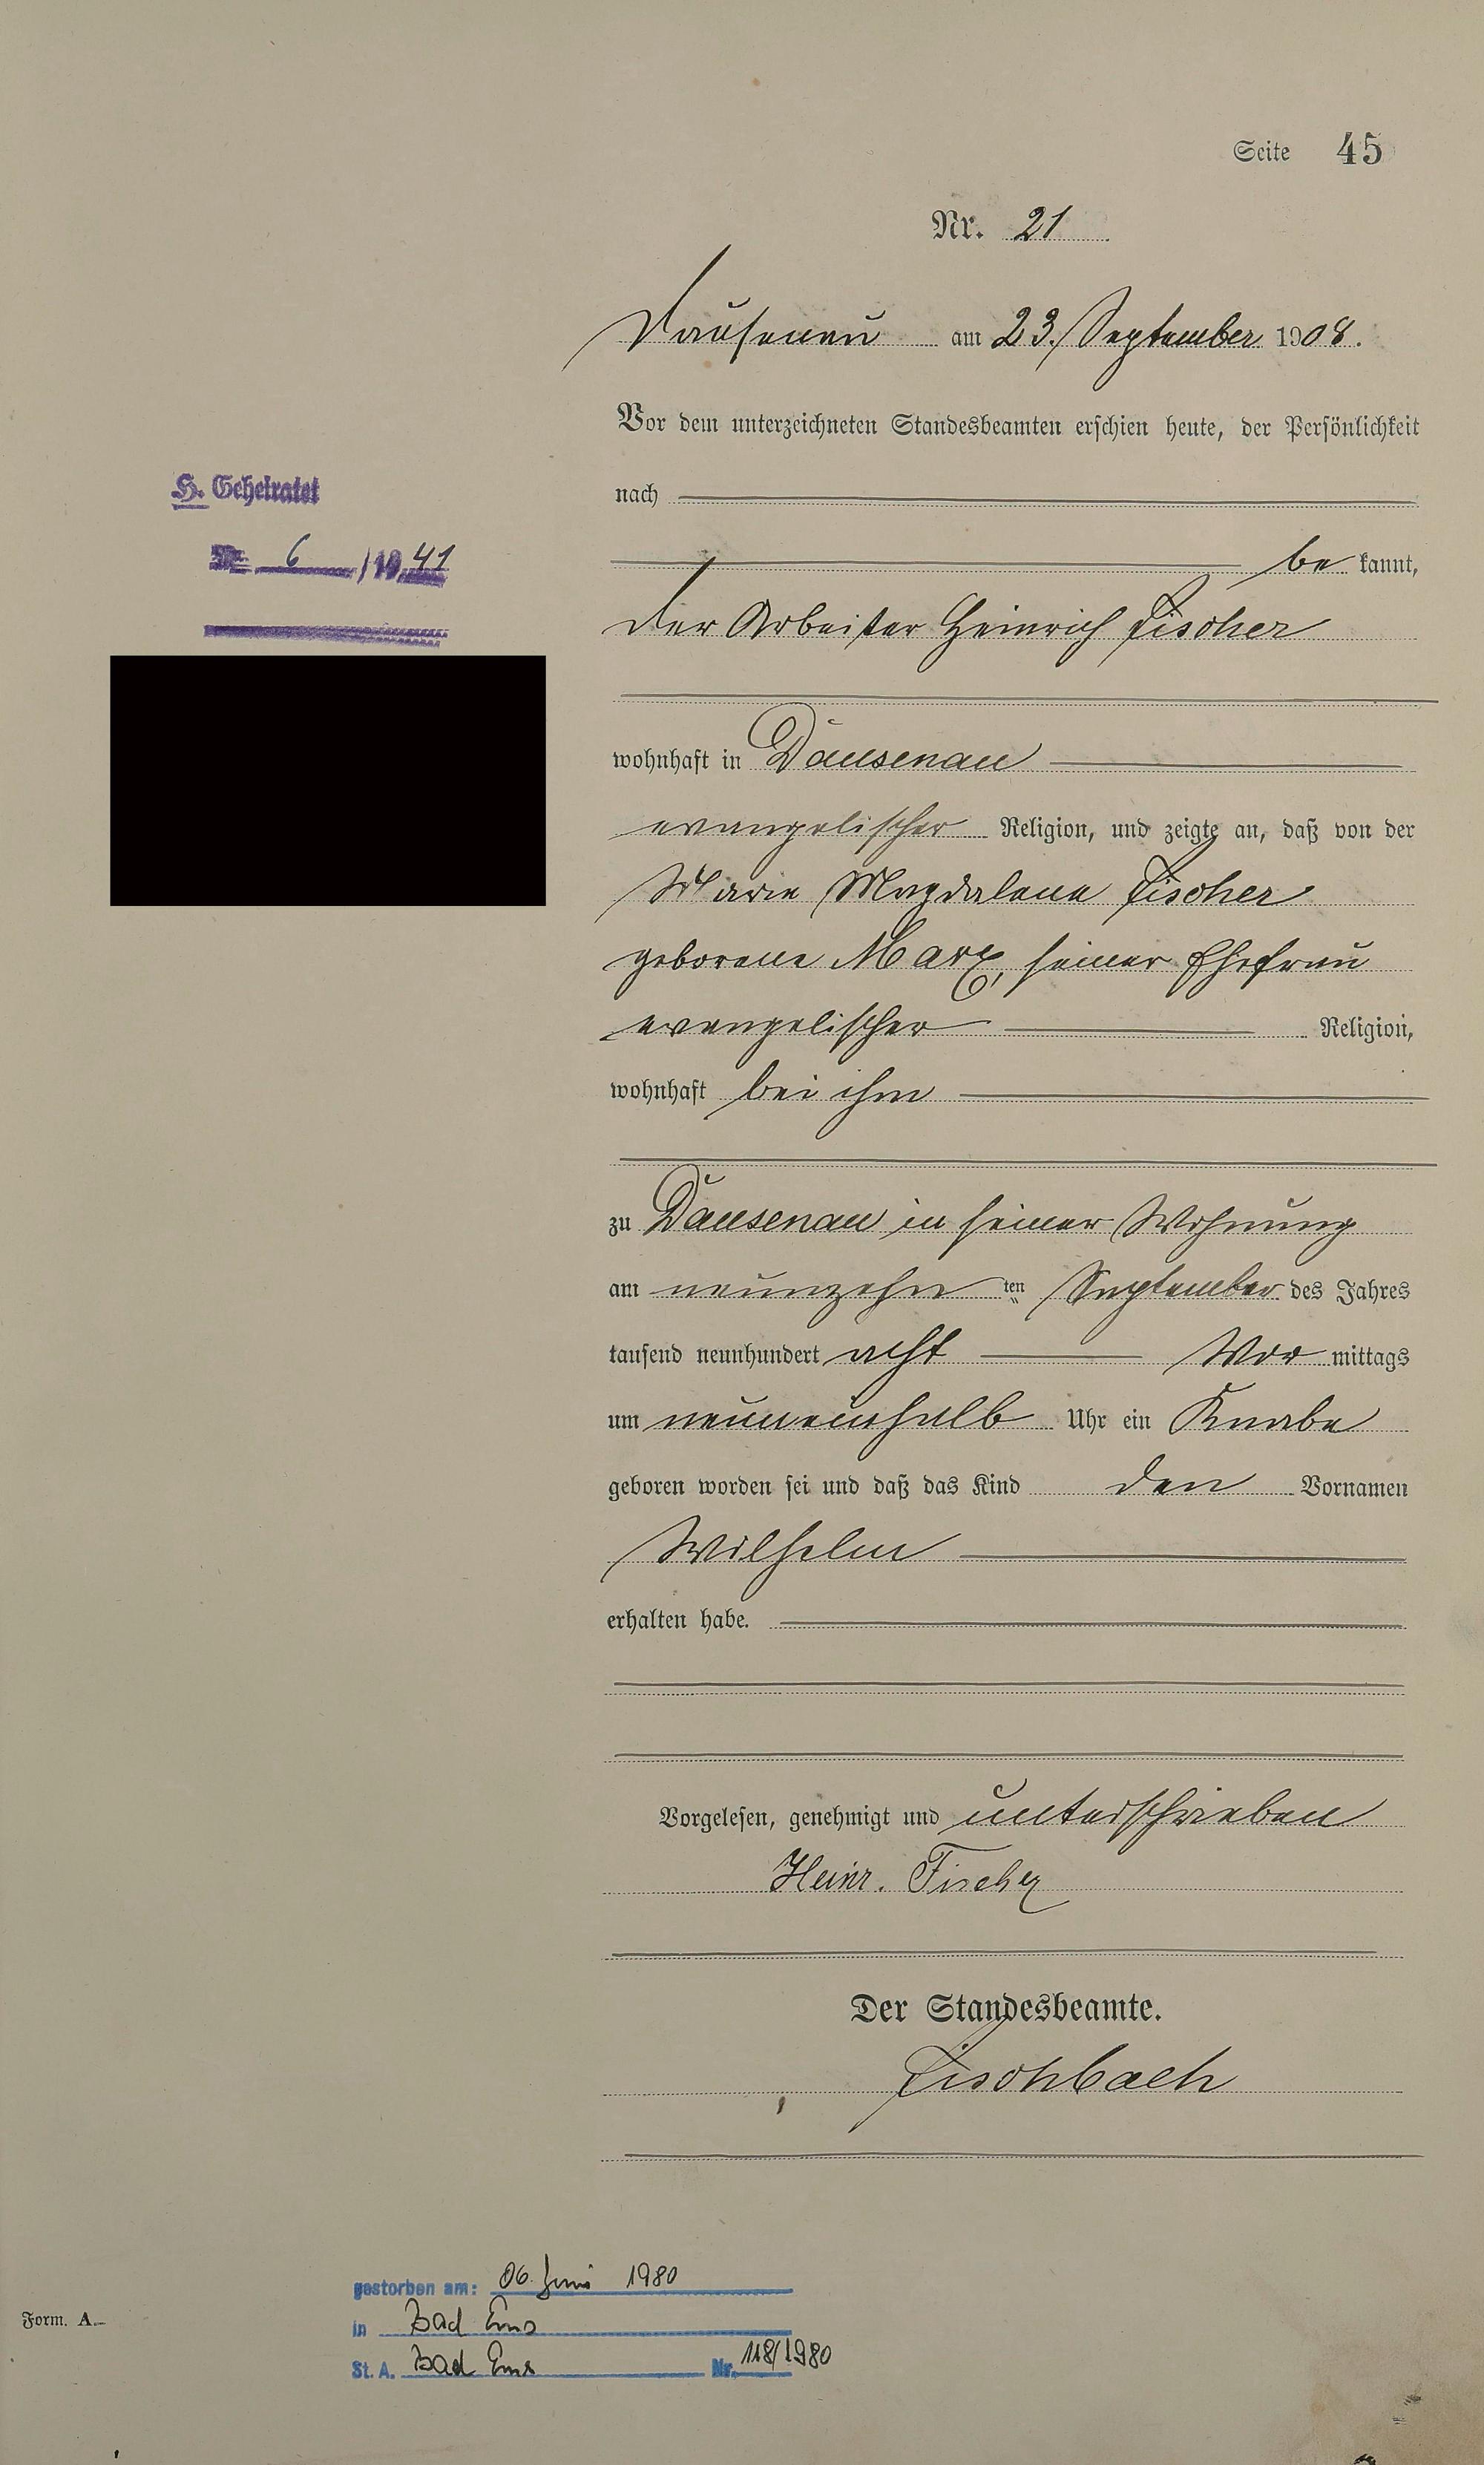 Seite 45
Nr. 21
Dausenau am 23. September 1908.
Vor dem unterzeichneten Standesbeamten erschien heute, der Persönlichkeit
nach
be kannt,
der Arbeiter Heinrich Fischer
wohnhaft in Dausenau
evangelischer Religion, und zeigte an, daß von der
Marie Magdalena Fischer
geborene Marx, seiner Ehefrau
evangelischer Religion,
wohnhaft bei ihm
zu Dausenau in seiner Wohnung
am neunzehn ten September des Jahres
tausend neunhundert acht Vor mittags
um neuneinhalb Uhr ein Knabe
geboren worden sei und daß das Kind den Vornamen
Wilhelm
erhalten habe.
Vorgelesen, genehmigt und unterschrieben
Heinr. Fischer
Der Standesbeamte.
Fischbach
H. Geheiratet
Nr. 6 /1941
gestorben am: 06. Juni 1980
in Bad Ems
St. A. Bad Ems Nr. 118/1980
Form. A.